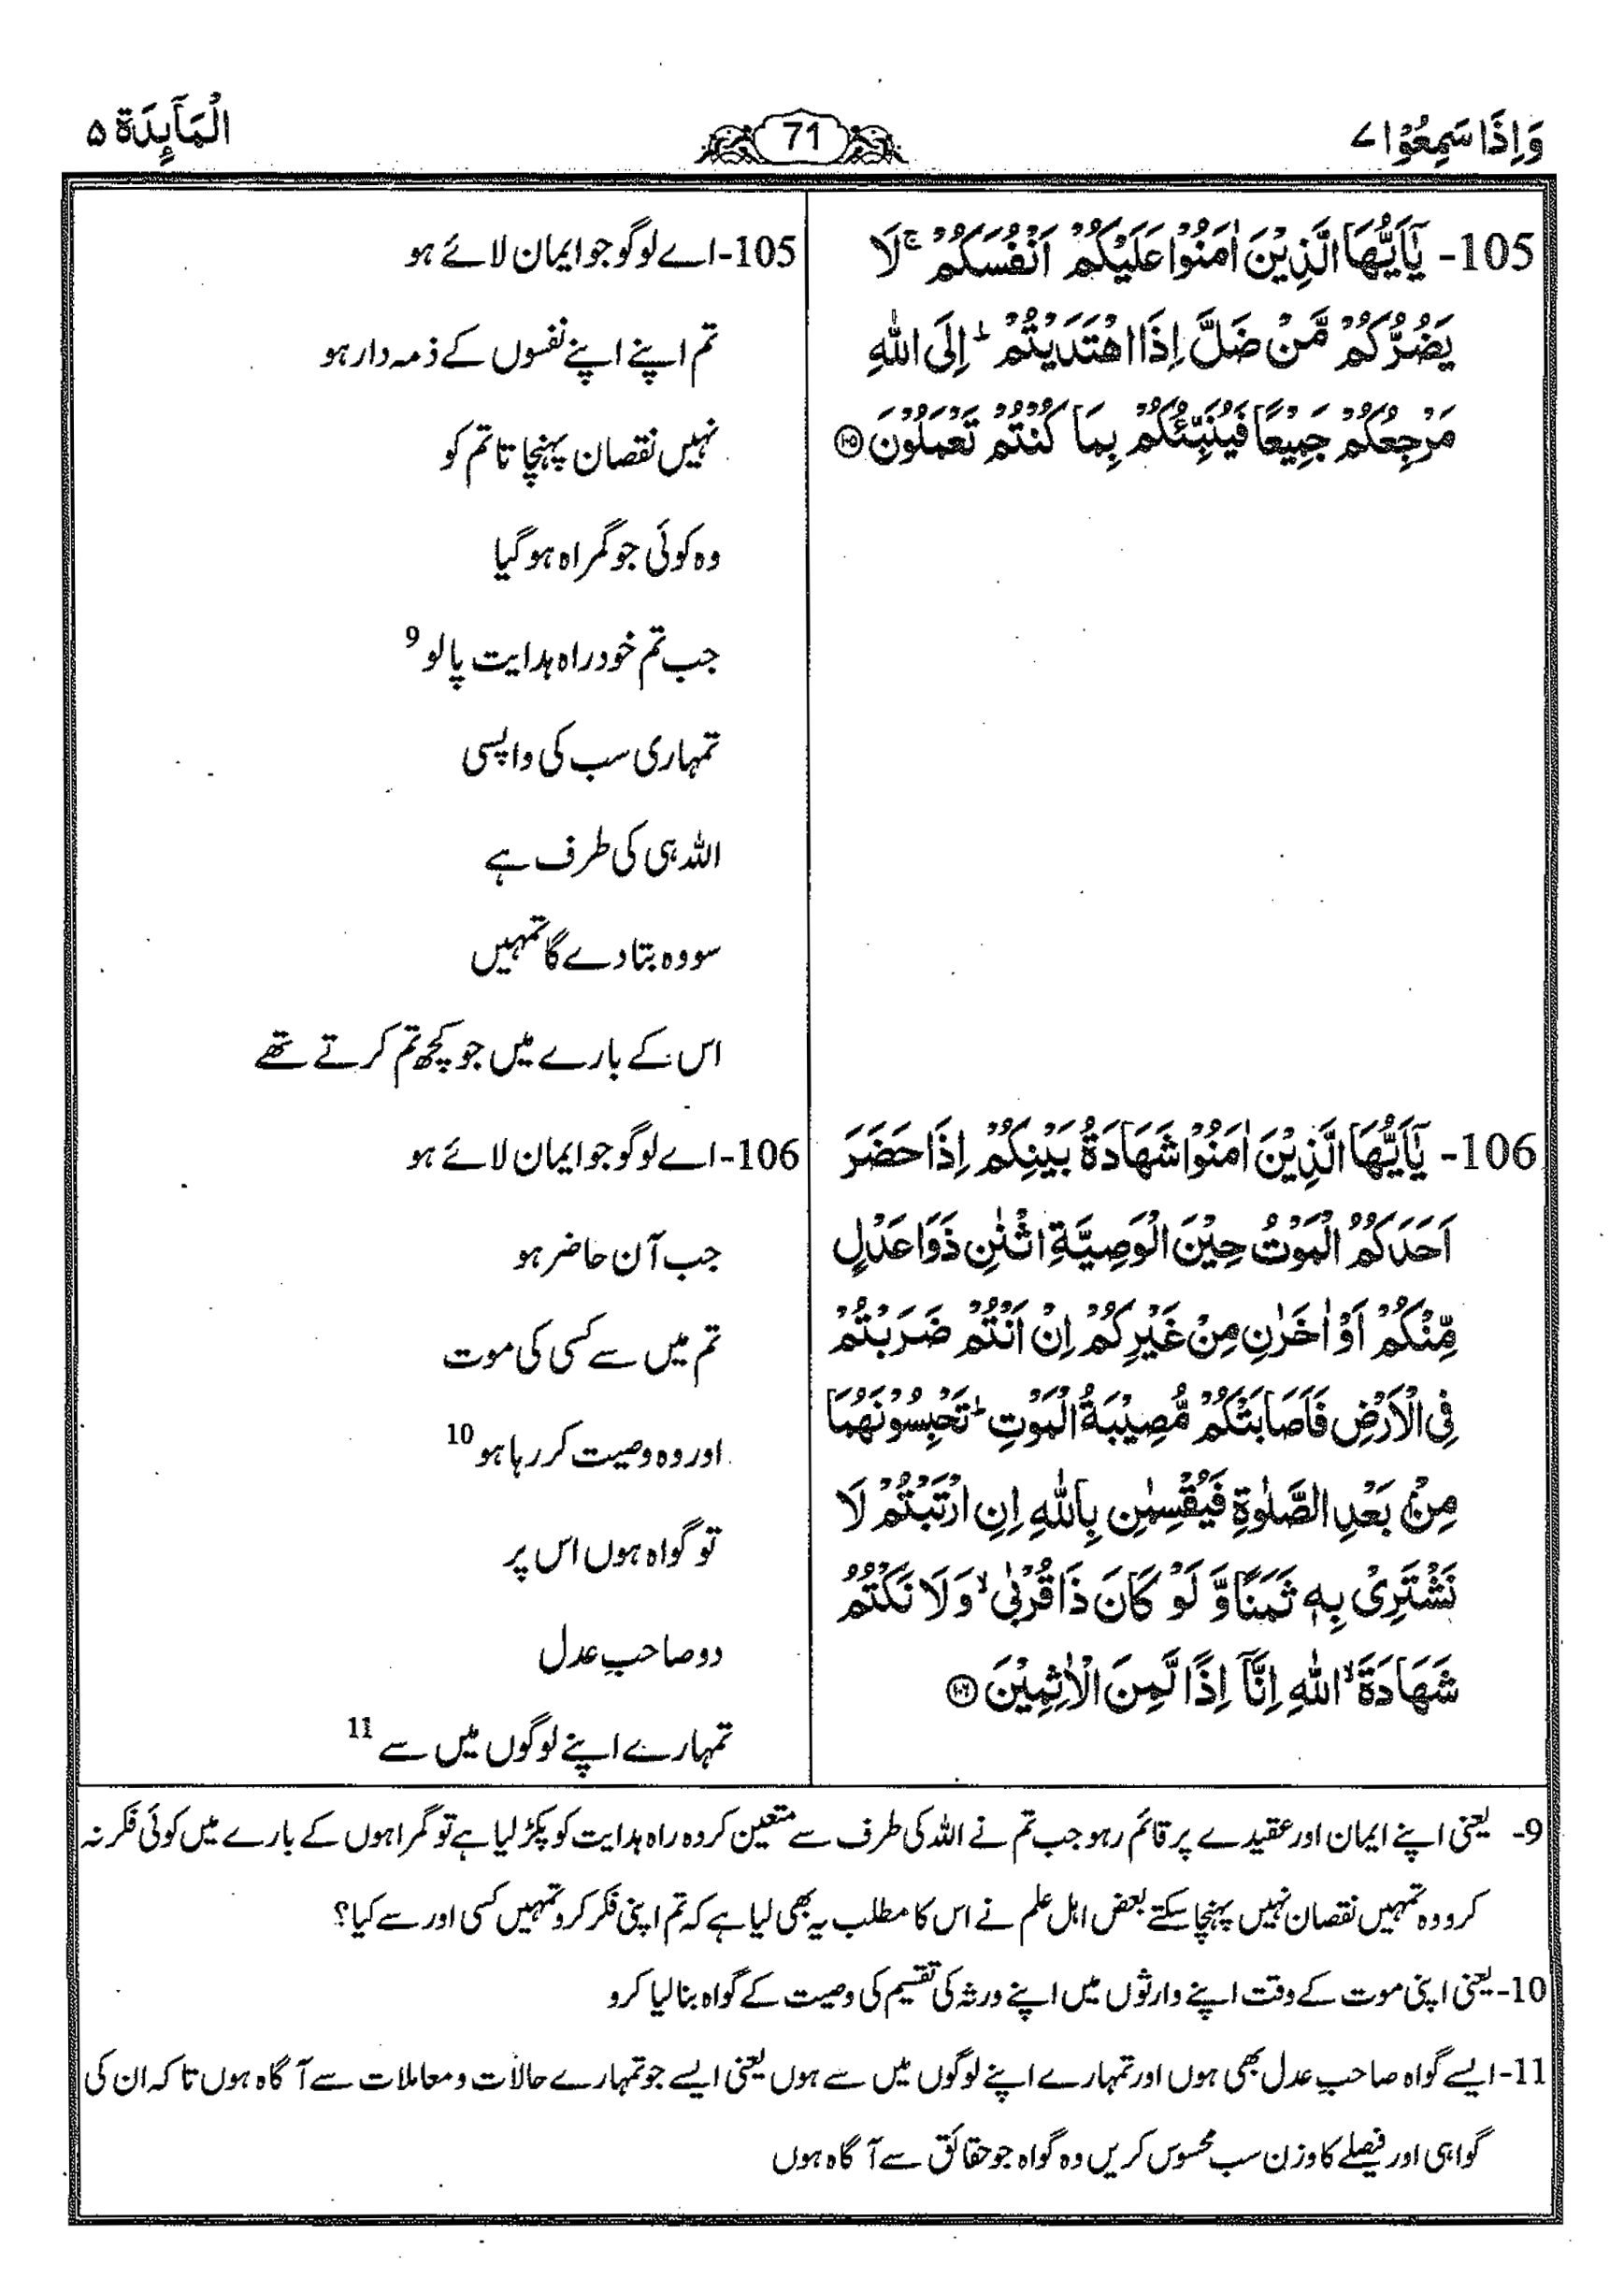 وَاِذَا سَمِعُوْا ۷
71
الْمَآئِدَة ۵
105- يٰۤاَيُّهَا الَّذِيْنَ اٰمَنُوْا عَلَيْكُمْ اَنْفُسَكُمْ ۚ لَا
يَضُرُّكُمْ مَّنْ ضَلَّ اِذَا اهْتَدَيْتُمْ ؕ اِلَى اللّٰهِ
مَرْجِعُكُمْ جَمِيْعًا فَيُنَبِّئُكُمْ بِمَا كُنْتُمْ تَعْمَلُوْنَ ۝۱۰۵
105-اے لوگو جو ایمان لائے ہو
تم اپنے اپنے نفسوں کے ذمہ دار ہو
نہیں نقصان پہنچا تا تم کو
وہ کوئی جو گمراہ ہو گیا
جب تم خود راہ ہدایت پا لو 9
تمہاری سب کی واپسی
اللہ ہی کی طرف ہے
سو وہ بتا دے گا تمہیں
اس کے بارے میں جو کچھ تم کرتے تھے
106- يٰۤاَيُّهَا الَّذِيْنَ اٰمَنُوْا شَهَادَةُ بَيْنِكُمْ اِذَا حَضَرَ
اَحَدَكُمُ الْمَوْتُ حِيْنَ الْوَصِيَّةِ اثْنٰنِ ذَوَا عَدْلٍ
مِّنْكُمْ اَوْ اٰخَرٰنِ مِنْ غَيْرِكُمْ اِنْ اَنْتُمْ ضَرَبْتُمْ
فِى الْاَرْضِ فَاَصَابَتْكُمْ مُّصِيْبَةُ الْمَوْتِ ؕ تَحْبِسُوْنَهُمَا
مِنْۢ بَعْدِ الصَّلٰوةِ فَيُقْسِمٰنِ بِاللّٰهِ اِنِ ارْتَبْتُمْ لَا
نَشْتَرِىْ بِهٖ ثَمَنًا وَّ لَوْ كَانَ ذَا قُرْبٰى ۙ وَلَا نَكْتُمُ
شَهَادَةَ ۙ اللّٰهِ اِنَّاۤ اِذًا لَّمِنَ الْاٰثِمِيْنَ ۝۱۰۶
106-اے لوگو جو ایمان لائے ہو
جب آن حاضر ہو
تم میں سے کسی کی موت
اور وہ وصیت کر رہا ہو 10
تو گواہ ہوں اس پر
دو صاحبِ عدل
تمہارے اپنے لوگوں میں سے 11
9- یعنی اپنے ایمان اور عقیدے پر قائم رہو جب تم نے اللہ کی طرف سے متعین کردہ راہ ہدایت کو پکڑ لیا ہے تو گمراہوں کے بارے میں کوئی فکر نہ
کرو وہ تمہیں نقصان نہیں پہنچا سکتے بعض اہل علم نے اس کا مطلب یہ بھی لیا ہے کہ تم اپنی فکر کرو تمہیں کسی اور سے کیا؟
10- یعنی اپنی موت کے وقت اپنے وارثوں میں اپنے ورثہ کی تقسیم کی وصیت کے گواہ بنا لیا کرو
11- ایسے گواہ صاحبِ عدل بھی ہوں اور تمہارے اپنے لوگوں میں سے ہوں یعنی ایسے جو تمہارے حالات و معاملات سے آ گاہ ہوں تا کہ ان کی
گواہی اور فیصلے کا وزن سب محسوس کریں وہ گواہ جو حقائق سے آ گاہ ہوں